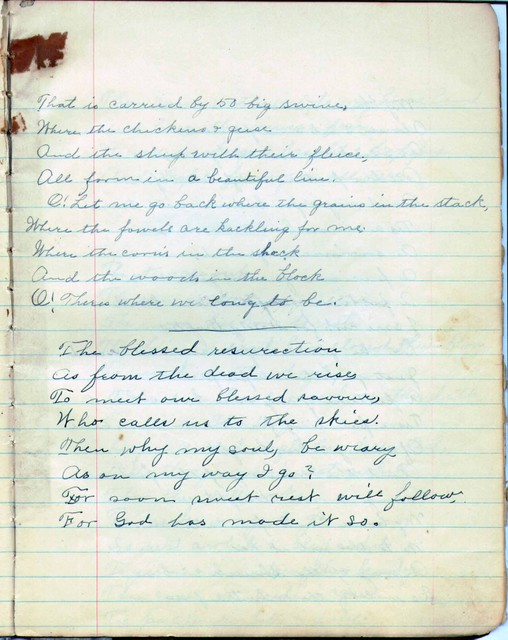 That is carried by 50 big swine,
Where the chickens & geese
And the sheep with their fleece,
All form in a beautiful line.
O! Let me go back where the grains in the stack,
Where the fowels are kackling for me
Where the corns in the shock
And the woods in the block
O! Theres where we long to be.
The blessed resurection
As from the dead we rise,
To meet our blessed savour,
Who calls us to the skies.
Then why my soul, be weary
As on my way I go?
For soon sweet rest will follow,
For God has made it so.